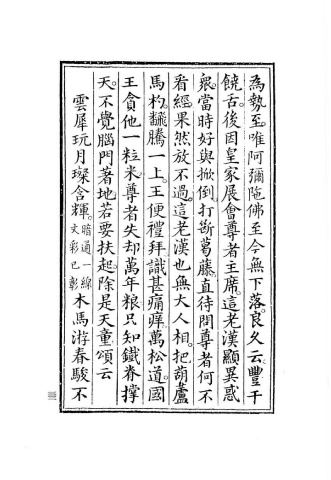 為勢至唯阿彌陁佛至今無下落良久云豐干
饒舌後因皇家展會尊者主席這老漢顯異惑
衆當時好與掀倒打斷葛藤直待問尊者何不
看經果然放不過這老漢也無大人相把葫蘆
馬杓翻騰一上王便禮拜識甚痛痒萬松道國
王貪他一粒米尊者失却萬年粮只知鐵脊撐
天不覺腦門著地若要扶起除是天童頌云
雲犀玩月璨含輝暗通一線文彩已彰木馬游春駿不